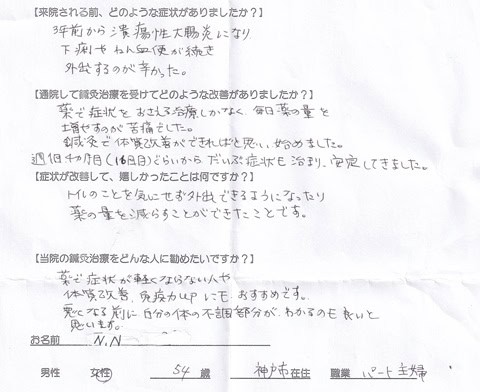 【来院される前、どのような症状がありましたか？】
3年前から潰瘍性大腸炎になり
下痢やねん血便が続き
外出するのが辛かった。
【通院して鍼灸治療を受けてどのような改善がありましたか？】
薬で症状をおさえる治療しかなく、毎日薬の量を
増やすのが苦痛でした。
鍼灸で体質改善ができればと思い、始めました。
週1回 4ヶ月(16回目)ぐらいからだいぶ症状も治まり、安定してきました。
【症状が改善して、嬉しかったことは何ですか？】
トイレのことを気にせず外出できるようになったり
薬の量を減らすことができたことです。
【当院の鍼灸治療をどんな人に勧めたいですか？】
薬で症状が軽くならない人や
体質改善、免疫力upにも、おすすめです。
悪くなる前に自分の体の不調部分が、わかるのも良いと
思います。
お名前 N.N
男性 女性 54 歳 神戸市在住 職業 パート主婦